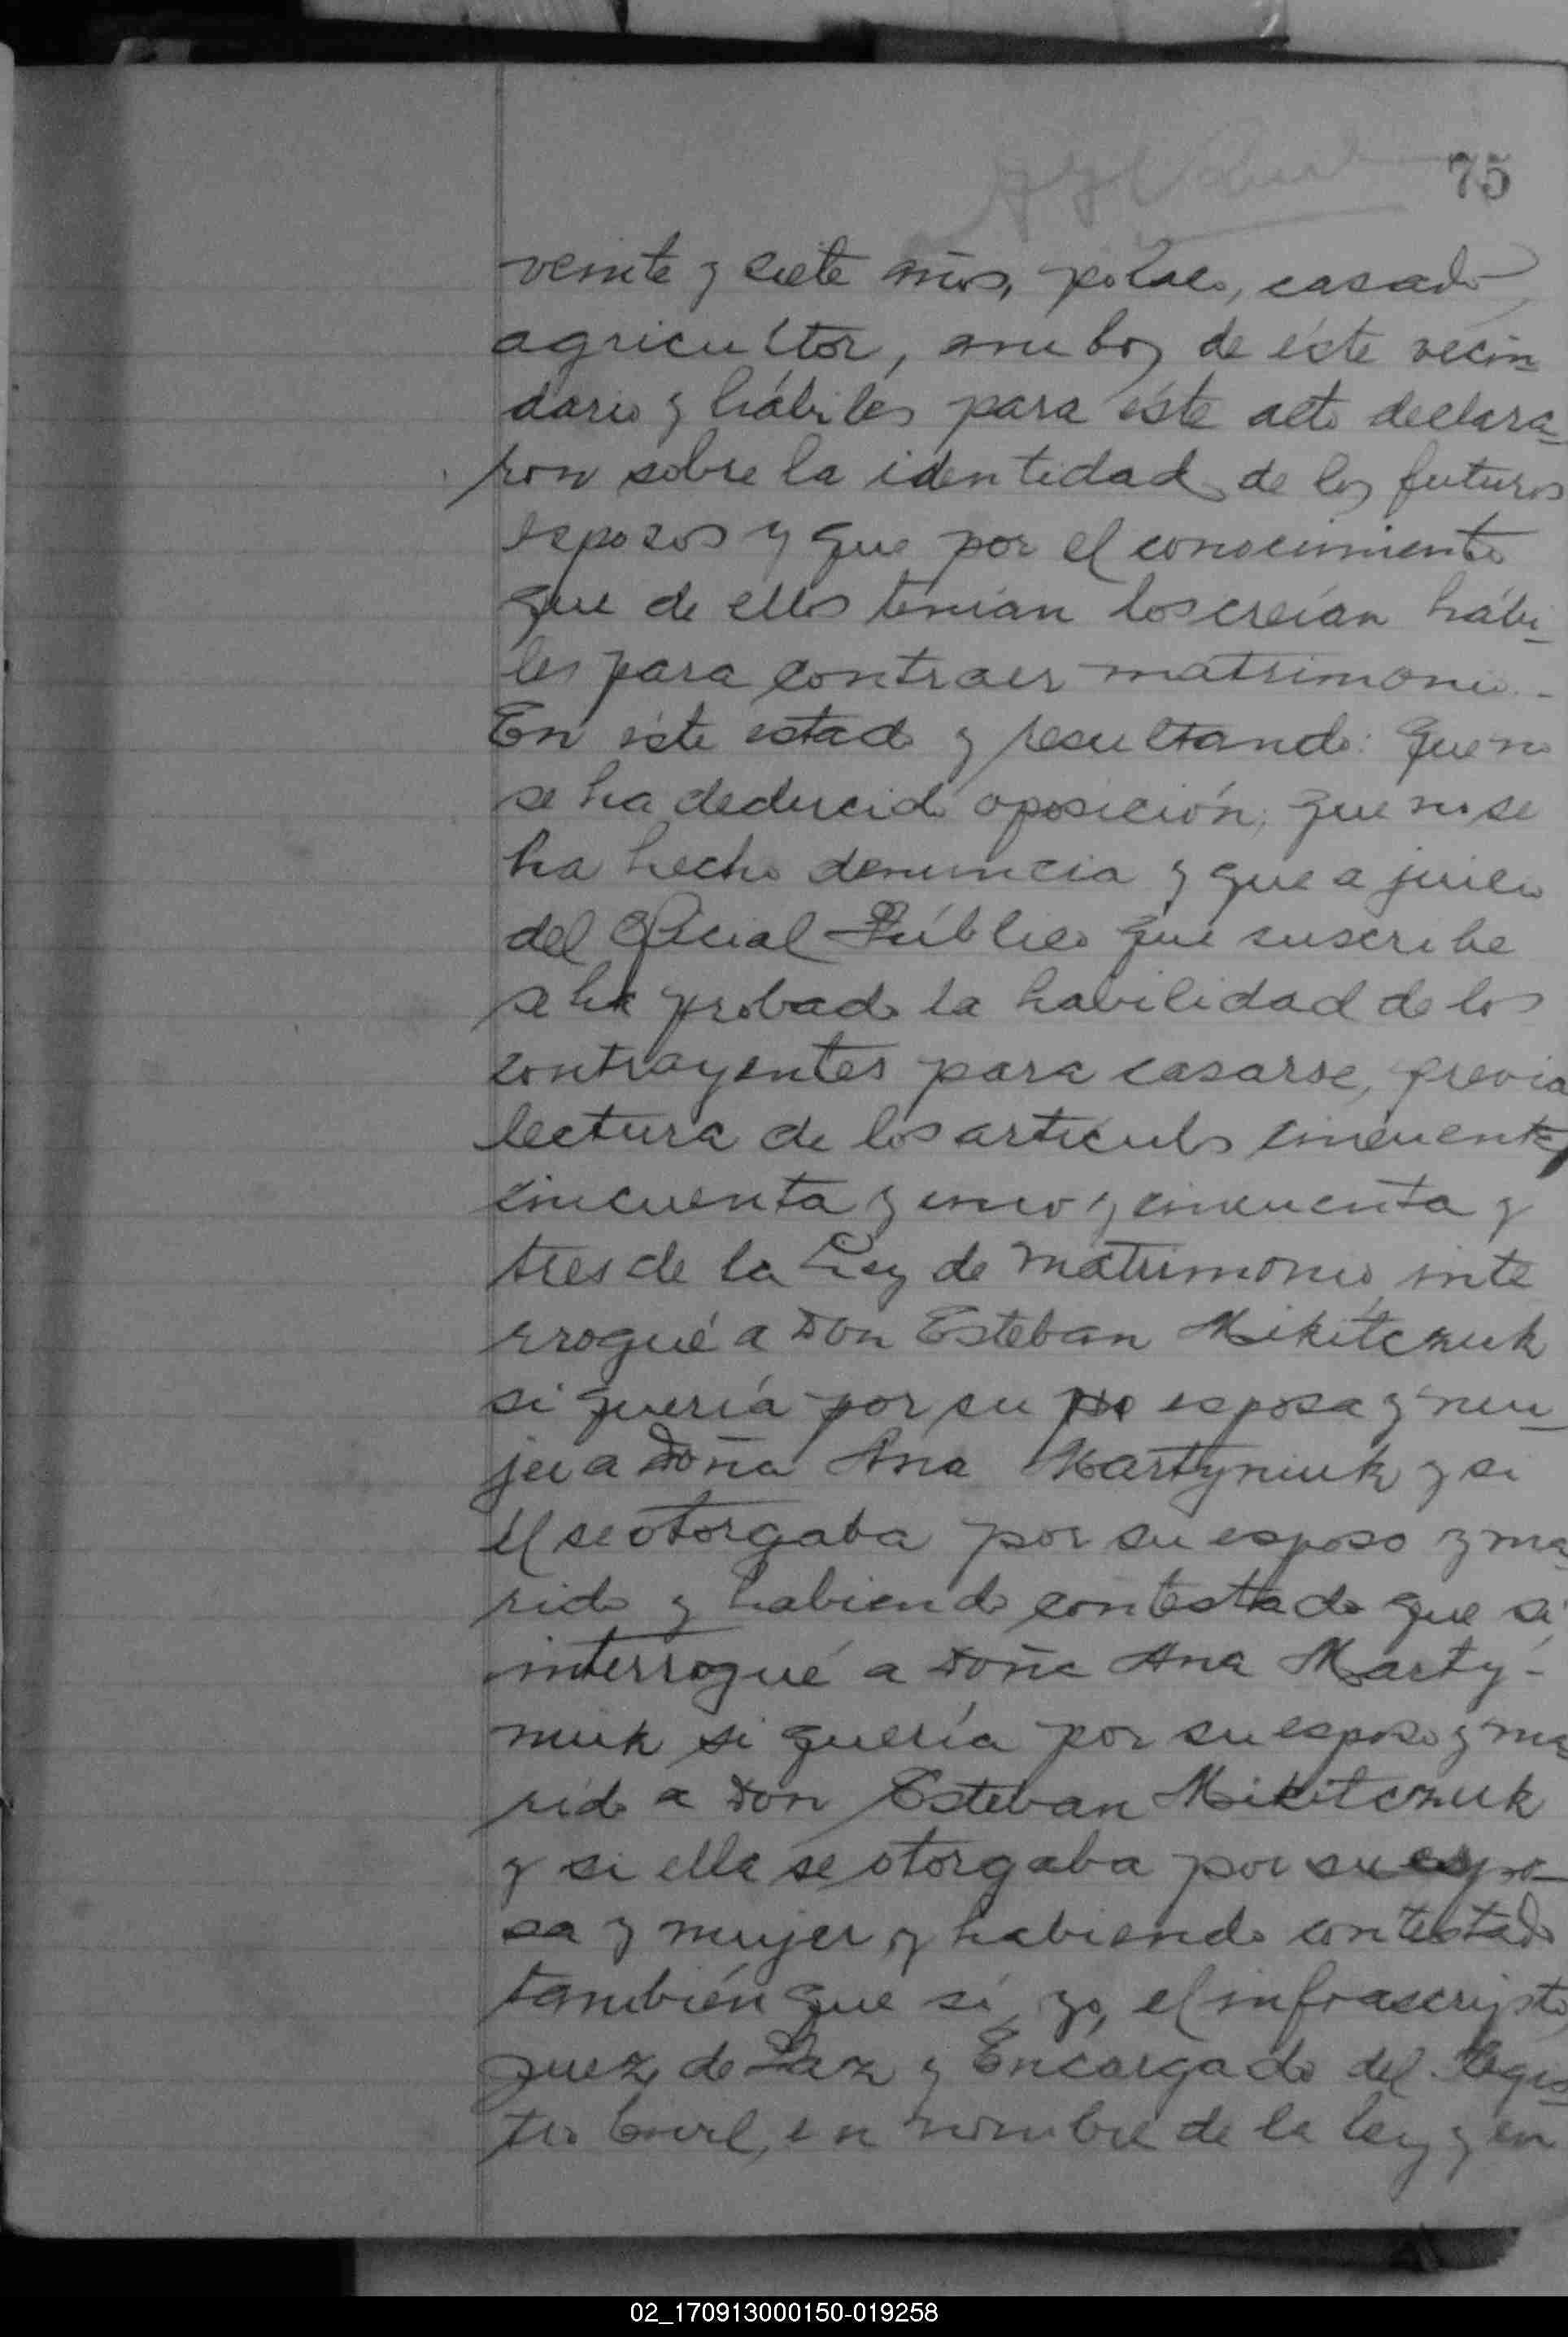 75
veinte y siete años, polaco, casado,
agricultor, ambos de éste vecin-
dario y hábiles para éste acto declara-
ron sobre la identidad de los futuros
esposos y que por el conocimiento
que de ellos tenían los creían hábi-
les para contraer matrimonio.-
En éste estado y resultando: Que no
se ha deducido oposición; que no se
ha hecho denuncia y que a juicio
del Oficial Público que suscribe
se ha probado la habilidad de los
contrayentes para casarse, previa
lectura de los artículos cincuenta,
cincuenta y uno y cincuenta y
tres de la Ley de Matrimonio, inte
rrogué a Don Esteban Mikitczuk
si quería por su esposa y mu-
jer a Doña Ana Martyniuk y si
él se otorgaba por su esposo y ma-
rido y habiendo contestado que sí,
interrogué a Doña Ana Marty-
niuk si quería por su esposo y ma-
rido a Don Esteban Mikitczuk
y si ella se otorgaba por su espo-
sa y mujer y habiendo contestado
también que sí, yo, el infrascripto,
Juez de Paz y Encargado del Regis-
tro Civil, en nombre de la ley y en
02_170913000150-019258